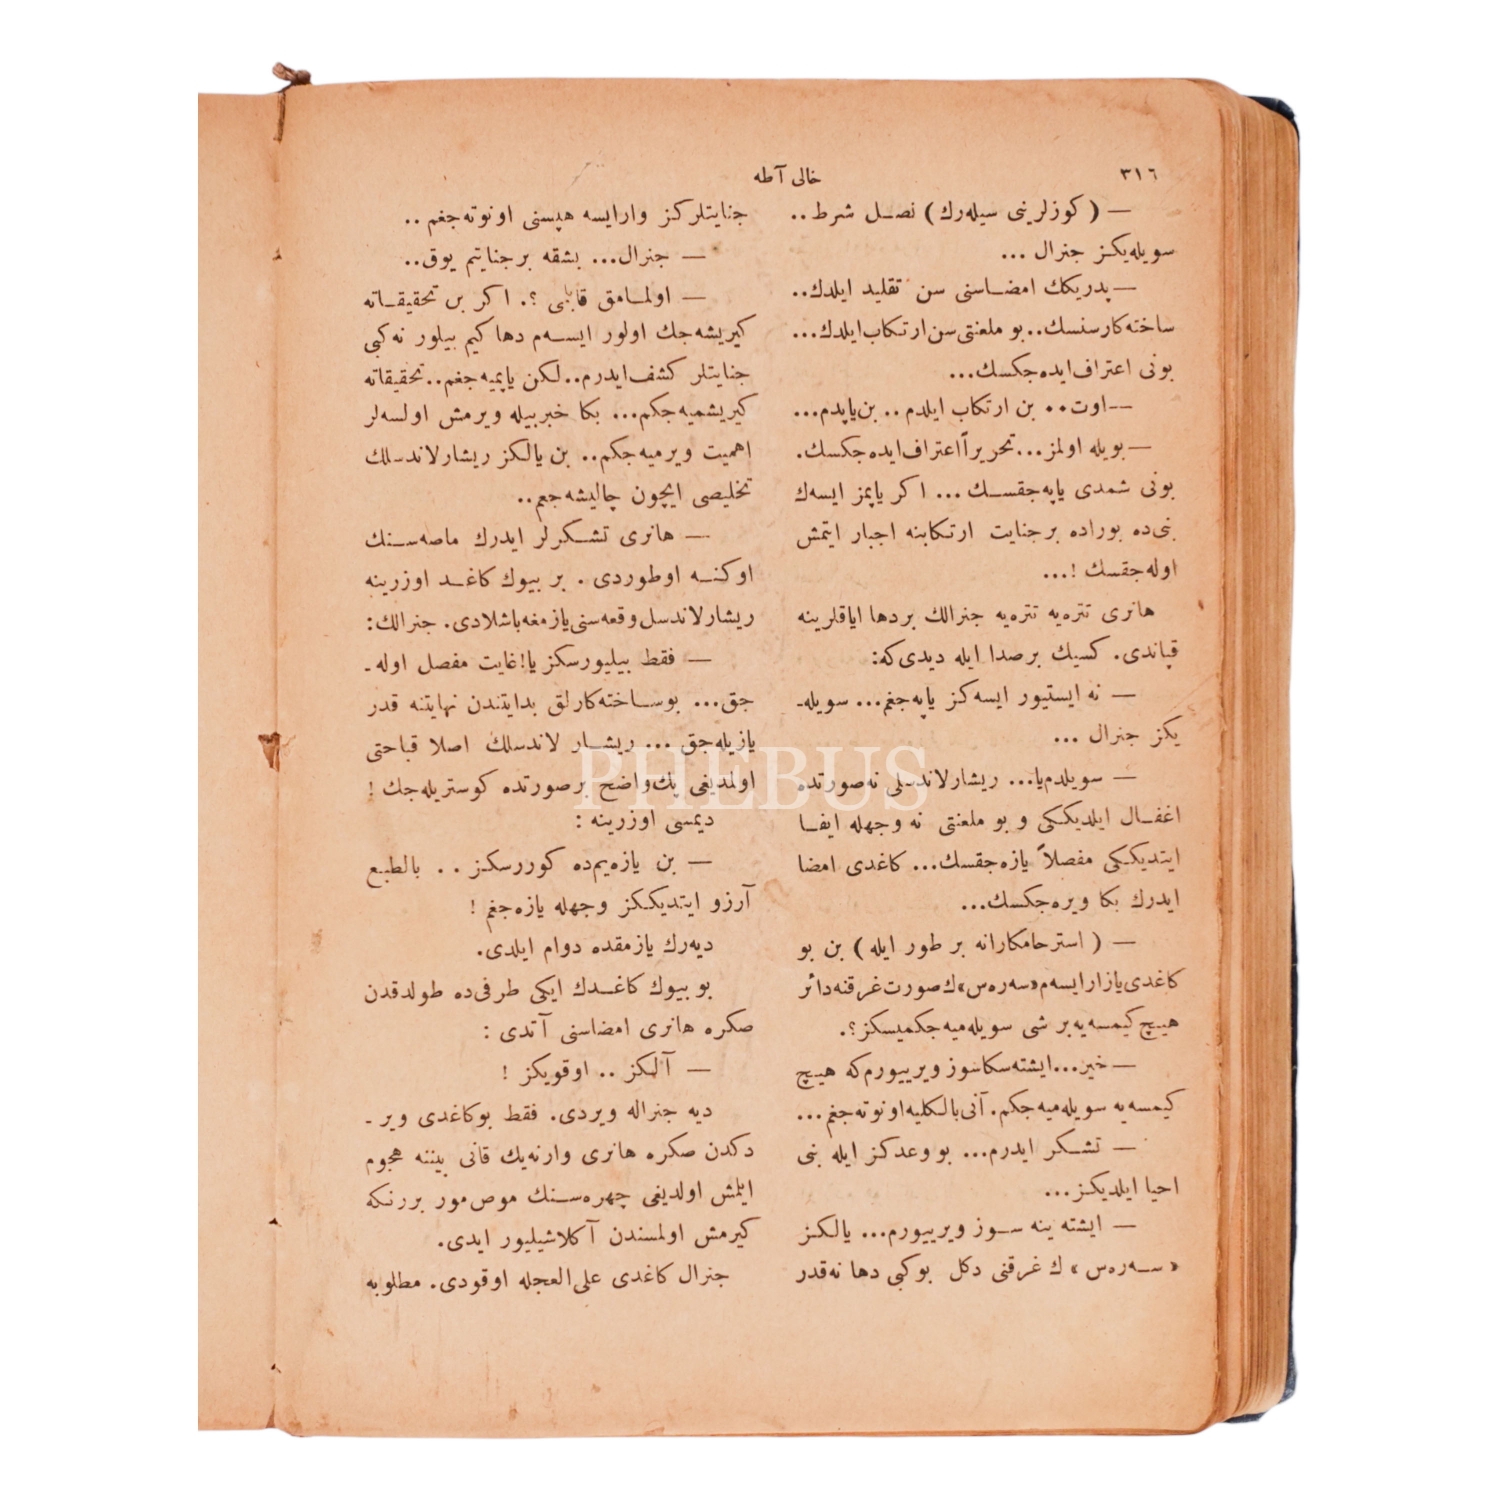 ٣١٦
خالی آطه
— ( كوزلرینی سیله‌رك ) نصل شرط ..
سویله‌یكز جنرال ...
— پدریكك امضاسنی سن تقلید ایلدك ..
ساخته‌كارسنسك .. بو ملعنتی سن ارتكاب ایلدك ...
بونی اعتراف ایده‌جكسك ...
— اوت .. بن ارتكاب ایلدم .. بن یاپدم ...
— بویله اولمز ... تحریراً اعتراف ایده‌جكسك .
بونی شمدی یاپه‌جقسك ... اكر یاپمز ایسه‌ك
بنی‌ده بوراده برجنایت ارتكابنه اجبار ایتمش
اوله‌جقسك ! ...
هانری تتره‌یه تتره‌یه جنرالك بردها ایاقلرینه
قپاندی . كسیك برصدا ایله دیدی‌كه :
— نه ایستیور ایسه‌كز یاپه‌جغم ... سویله‌ـ
یكز جنرال ...
— سویلدم یا ... ریشار لاندسلی نه صورتده
اغفال ایلدیككی و بو ملعنتی نه وجهله ایفا
ایتدیككی مفصلاً یازه‌جقسك ... كاغدی امضا
ایدرك بكا ویره‌جكسك ...
— ( استرحامكارانه بر طور ایله ) بن بو
كاغدی یازار ایسه‌م «سه‌ره‌س» ك صورت غرقنه دائر
هیچ كیمسه‌یه بر شی سویله‌میه‌جكمیسكز ؟ .
— خیر ... ایشته سكا سوز ویرییورم كه هیچ
كیمسه‌یه سویله‌میه‌جكم . آنی بالكلیه اونوته‌جغم ...
— تشكر ایدرم ... بو وعدكز ایله بنی
احیا ایلدیكز ...
— ایشته ینه سوز ویرییورم ... یالكز
« سه‌ره‌س » ك غرقنی دكل بوكبی دها نه‌قدر
جنایتلركز وارایسه هپسنی اونوته‌جغم ..
— جنرال ... بشقه برجنایتم یوق ..
— اولمامق قابلی ؟ . اكر بن تحقیقاته
كیریشه‌جك اولور ایسه‌م دها كیم بیلور نه كبی
جنایتلر كشف ایدرم .. لكن یاپمیه‌جغم .. تحقیقاته
كیریشمیه‌جكم ... بكا خبر بیله ویرمش اولسه‌لر
اهمیت ویرمیه‌جكم .. بن یالكز ریشار لاندسلك
تخلیصی ایچون چالیشه‌جغم ..
— هانری تشكرلر ایدرك ماصه‌سنك
اوكنه اوطوردی . بر بیوك كاغد اوزرینه
ریشار لاندسل وقعه‌سنی یازمغه باشلادی . جنرالك :
— فقط بیلیورسكز یا ! غایت مفصل اوله ـ
جق ... بو ساخته‌كارلق بدایتندن نهایتنه قدر
یازیله‌جق ... ریشار لاندسلك اصلا قباحتی
اولمدیغی پك واضح برصورتده كوستریله‌جك !
دیمسی اوزرینه :
— بن یازه‌یم‌ده كوررسكز .. بالطبع
آرزو ایتدیككز وجهله یازه‌جغم !
دیه‌رك یازمقده دوام ایلدی .
بو بیوك كاغدك ایكی طرفی‌ده طولدقدن
صكره هانری امضاسنی آتدی :
— آلكز .. اوقویكز !
دیه جنراله ویردی . فقط بوكاغدی ویر ـ
دكدن صكره هانری وارنه‌یك قانی بیننه هجوم
ایلمش اولدیغی چهره‌سنك موص‌مور بررنكه
كیرمش اولمسندن آكلاشیلیور ایدی .
جنرال كاغدی علی‌العجله اوقودی . مطلوبه
PHEBUS